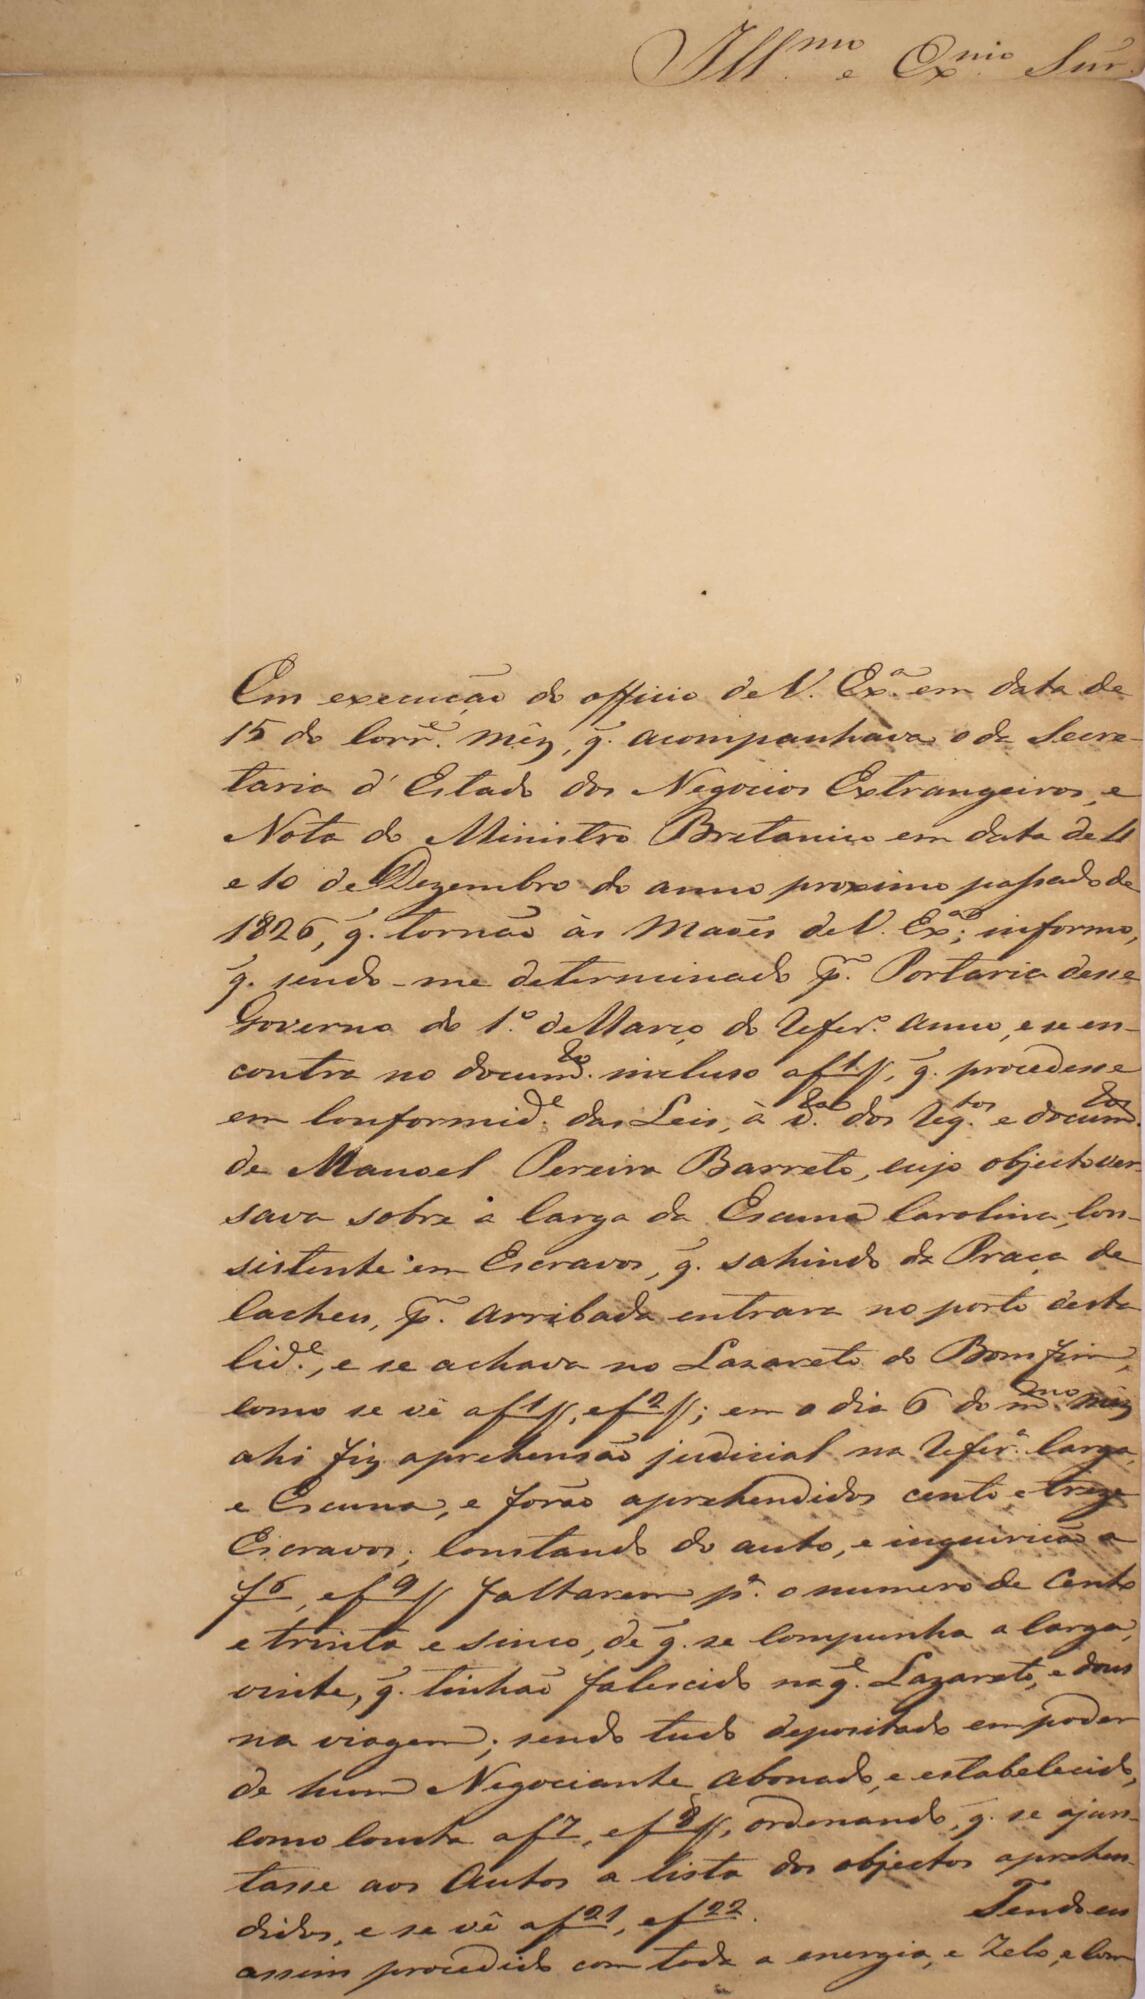 Ill.mo e Ex.mo Snr.
Em execução do officio de V. Ex.ª em data de
15 do corr.e mêz, q̃. acompanhava o da Secre-
taria d'Estado dos Negocios Extrangeiros, e
Nota do Ministro Bretanico em data de 11
e 10 de Dezembro do anno proximo passado de
1826, q̃. tornão às Maões de V. Ex.ª; informo,
q̃. sendo-me determinado p̃. Portaria desse
Governo do 1.º de Março do refer.º anno, e se en-
contra no docum.to incluso a f 1 //, q̃. procedesse
em conformid.e das Leis, à v.ta dos req.tos e docum.tos
de Manoel Pereira Barreto, cujo objecto ver-
sava sobre a carga da Escuna Carolina, con-
sistente em Escravos, q̃. sahindo da Praça de
Cacheu, p̃. arribada entrara no porto desta
Cid.e, e se achava no Lazareto do Bomfim,
como se vê a f 1 //, e f 2 //; em o dia 6 do m.mo mêz
ahi fiz aprehensão judicial na refer.ª carga,
e Escuna, e forão aprehendidos cento e treze
Escravos; constando do auto, e inquirição a
f 6, e f 9 // faltarem p.ª o numero de cento
e trinta e sinco, de q̃. se compunha a carga,
vinte, q̃. tinhão falescido naq̃.e Lazareto, e dous
na viagem; sendo tudo depositado em poder
de hum Negociante abonado, e estabelecido,
como consta a f 7, e f 8 //, ordenando, q̃. se ajun-
tasse aos Autos a lista dos objectos aprehen-
didos, e se vê a f 21, e f 22. Tendo eu
assim procedido com toda a energia, e zelo, e com